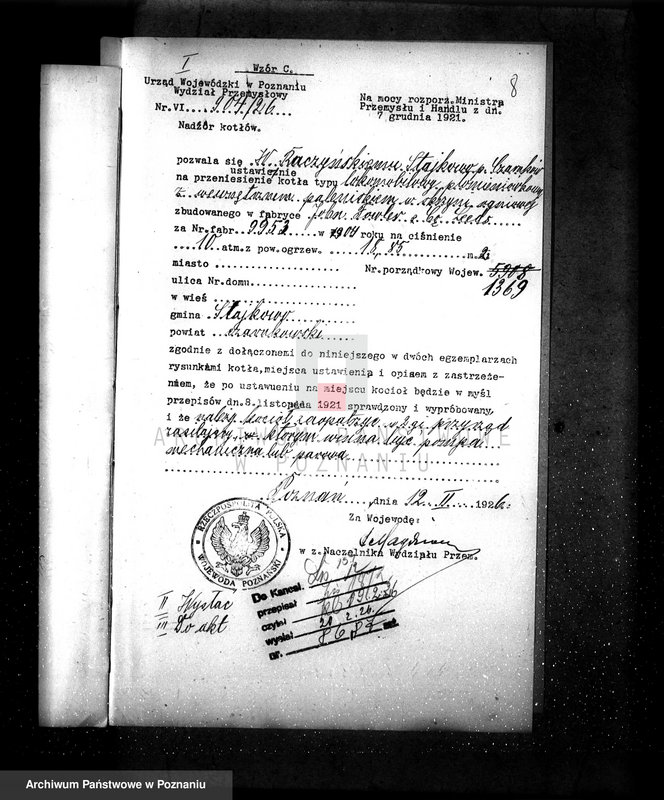 I
Wzór C.
8
Urząd Wojewódzki w Poznaniu
Wydział Przemysłowy
Nr.VI....904/26...
Nadzór kotłów.
Na mocy rozporz.Ministra
Przemysłu i Handlu z dn.
7 grudnia 1921.
pozwala się W. Raczyńskiemu Stajkowo p.
ustawienie
na przeniesienie kotła typu lokomobilowy płomieniówkowy
z wewnętrznem paleniskiem w skrzyni ogniowej
zbudowanego w fabryce John Fowler Leeds
za Nr.fabr. 9953 w 1904 roku na ciśnienie
10 atm.z pow.ogrzew. 18,85 m.2:
miasto .................. Nr.porząd'owy Wojew. 5908
1369
ulica Nr.domu..................
w wieś ..................
gmina Stajkowo
powiat czarnkowski
zgodnie z dołączonemi do niniejszego w dwóch egzemplarzach
rysunkami kotła,miejsca ustawienia i opisem z zastrzeże-
niem, że po ustawueniu na miejscu kocioł będzie w myśl
przepisów dn.8.listopada 1921 sprawdzony i wypróbowany,
i że należy kocioł zaopatrzyć w 2gi przyrząd
zasilający, w którym winna być pompa
mechaniczna lub parowa
ARCHIWUM PAŃSTWOWE
W POZNANIU
Poznań, dnia 12. II. 1926.
Za Wojewodę:
w z. Naczelnika Wydziału Przem.
RZECZPOSPOLITA POLSKA
WOJEWODA POZNAŃSKI
II Wysłać
III Do akt
Do Kancel.
przepisał
czytał
wysłał 20.2.26.
nr. 8687
Archiwum Państwowe w Poznaniu